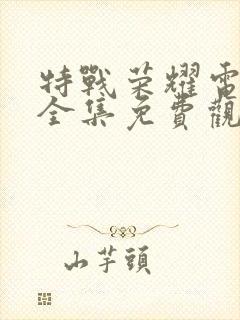 特戰榮耀電
全集免費觀
山芋頭